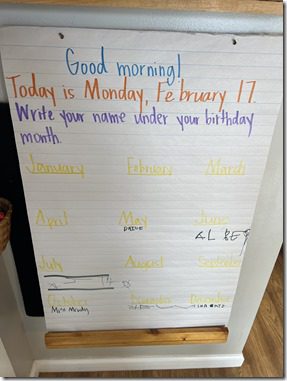 Good morning!
Today is Monday, February 17.
Write your name under your birthday
month.
January February March
April May June
July August September
October November December
Miss Mendy